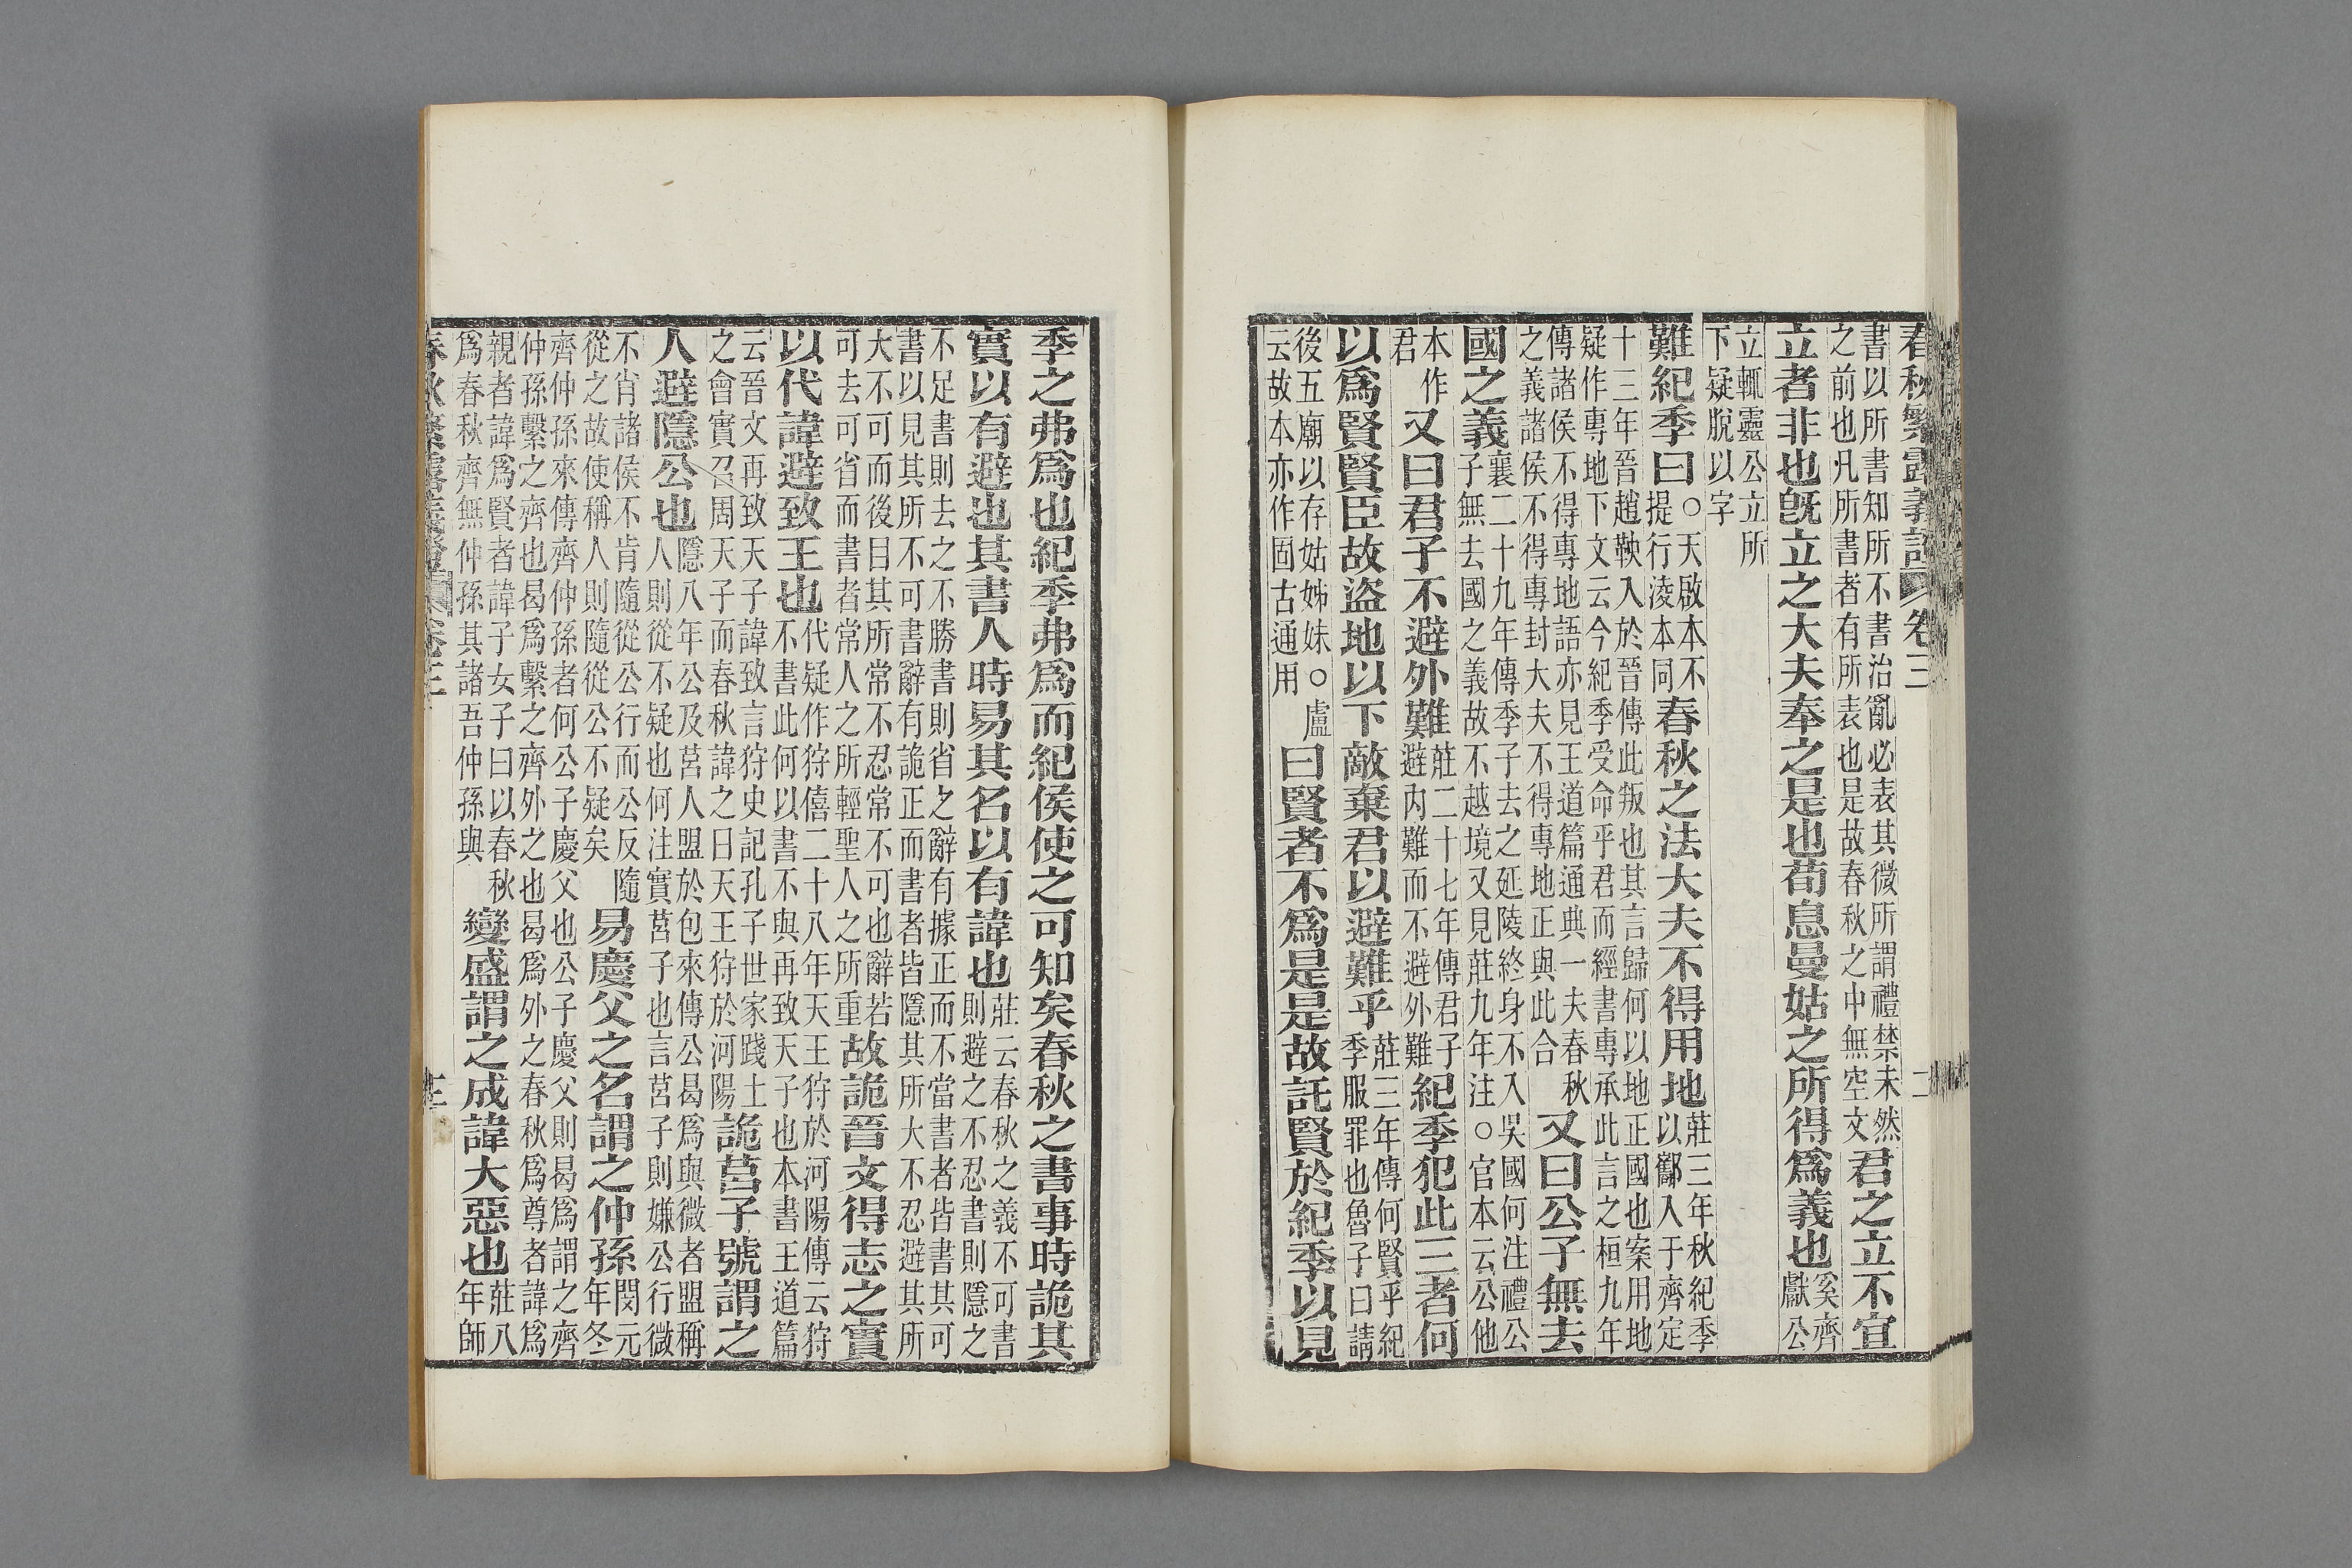 春秋繁露義證 卷三 二
書以所書知所不書治亂必表其微所謂禮禁未然之前也凡所書者有所表也是故春秋之中無空文君之立不宜
立者非也旣立之大夫奉之是也荀息曼姑之所得爲義也奚齊獻公
立輒靈公立所下疑脫以字
難紀季曰○天啟本不提行淩本同春秋之法大夫不得用地莊三年秋紀季以酅入于齊定
十三年晉趙鞅入於晉傳此叛也其言歸何以地正國也案用地疑作專地下文云今紀季受命乎君而經書專承此言之桓九年
傳諸侯不得專地語亦見王道篇通典一夫春秋之義諸侯不得專封大夫不得專地正與此合又曰公子無去
國之義襄二十九年傳季子去之延陵終身不入吳國何注禮公子無去國之義故不越境又見莊九年注○官本云公他
本作君又曰君子不避外難莊二十七年傳君子避內難而不避外難紀季犯此三者何
以爲賢賢臣故盜地以下敵棄君以避難乎莊三年傳何賢乎紀季服罪也魯子曰請
後五廟以存姑姊妹○盧云故本亦作固古通用曰賢者不爲是是故託賢於紀季以見
季之弗爲也紀季弗爲而紀侯使之可知矣春秋之書事時詭其
實以有避也其書人時易其名以有諱也莊云春秋之義不可書則避之不忍書則隱之
不足書則去之不勝書則省之辭有據正而不當書者皆書其可書以見其所不可書辭有詭正而書者皆隱其所大不忍避其所
大不可而後目其所常不忍常不可也辭若可去可省而書者常人之所輕聖人之所重故詭晉文得志之實
以代諱避致王也代疑作狩僖二十八年天王狩於河陽傳云狩不書此何以書不與再致天子也本書王道篇
云晉文再致天子諱致言狩史記孔子世家踐土之會實召周天子而春秋諱之曰天王狩於河陽詭莒子號謂之
人避隱公也隱八年公及莒人盟於包來傳公曷爲與微者盟稱人則從不疑也何注實莒子也言莒子則嫌公行微
不肖諸侯不肯隨從公行而公反隨從之故使稱人則隨從公不疑矣易慶父之名謂之仲孫閔元年冬
齊仲孫來傳齊仲孫者何公子慶父也公子慶父則曷爲謂之齊仲孫繫之齊也曷爲繫之齊外之也曷爲外之春秋爲尊者諱爲
親者諱爲賢者諱子女子曰以春秋爲春秋齊無仲孫其諸吾仲孫與變盛謂之成諱大惡也莊八年師
春秋繁露義證 卷三 三